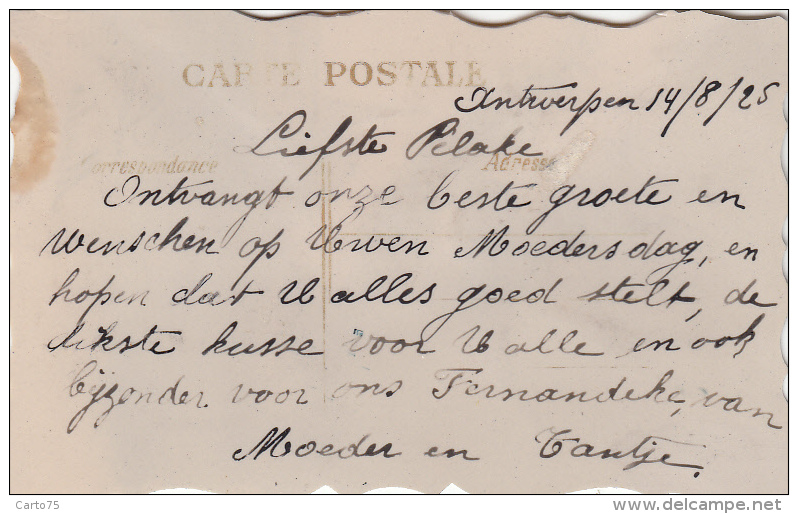 CARTE POSTALE
Antwerpen 14/8/25
Liefste Pelake
Correspondance Adresse
Ontvangt onze beste groete en
wenschen op Uwen Moedersdag, en
hopen dat U alles goed stelt, de
dikste kusse voor U alle en ook
bijzonder voor ons Fernandeke, van
Moeder en Tantje.
Carto75
delcampe.net